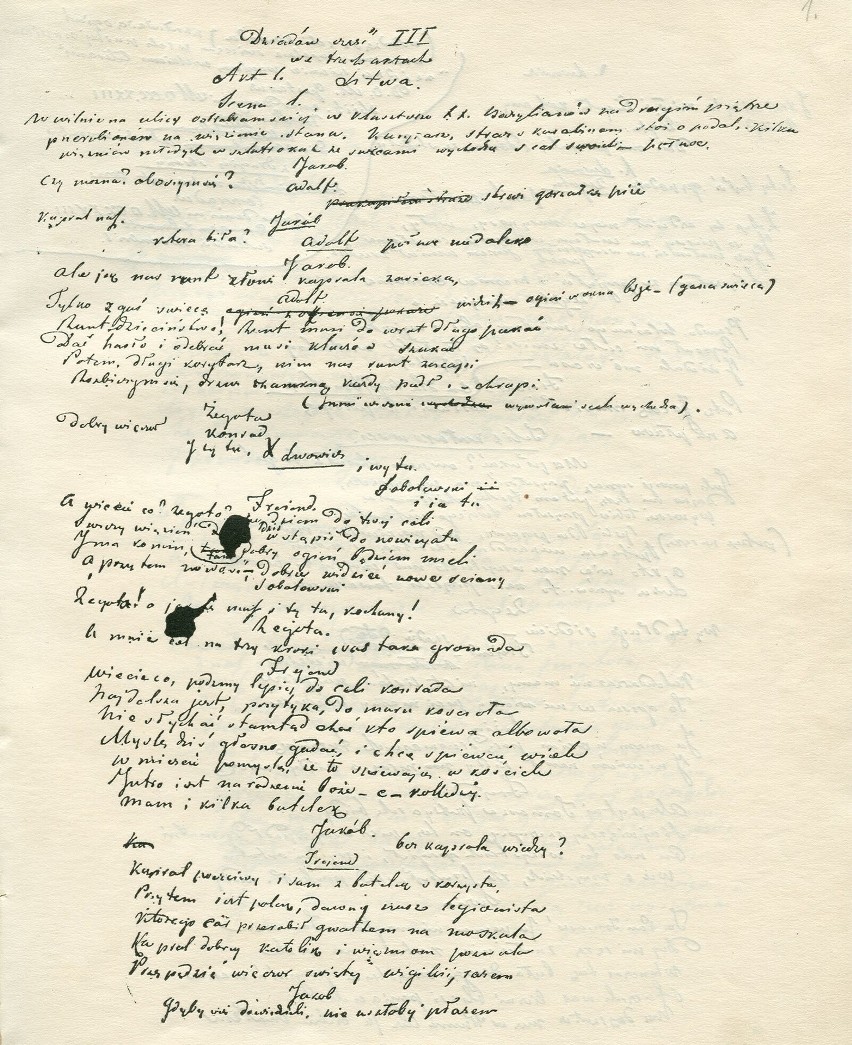 1.
Dziadów część III
we trzech aktach
Akt 1. Litwa.
Scena 1.
W wilnie na ulicy ostrobramskiej w klasztorze X.X. bazylianów na drugim piętrze
na więzienie stanu. Kapral, straż z karabinem stoi opodal. kilku
więźniów młodych ze świecami wychodzą z cel swoich północ.
Jakob.
Czy można? obaczymyś?
Adolf.
straż gorzałkę pije
Kapral nasz.
Jakób
która biła?
Adolf
północ niedaleko
Jakob.
Ale jeśli nas runt złowi kaprala
Adolf
Tylko zgaś świecę widzisz ogień w okna bije (gasną świecę)
Runt dzieciństwo, Runt musi do wrot długo pukać
Dać hasło i odebrać musi kluczów szukać
Potem długi korytarz, nim nas runt zacapi
Rozbieżymy się, drzwi zamkną każdy padł i chrapi.
(Inni więźnie wywołani z cel wychodzą).
Dobry wieczór
Żegota
Konrad
I ty tu,
X Lwowicz
i wy tu.
Sobolewski
i ja tu
Frejend
A wiesz co? Żegoto idziem do twej celi
Świeży więzień dziś wstąpił do nowicjatu
I ma komin, dobry ogień będziem mieli
A przytem nowość dobrze widzieć nowe ściany
Sobolewski
Żegota! a nasz i ty tu, kochany!
Żegota.
U mnie cel na trzy kroki was taka gromada
Frejend
Wiecie co, pódźmy lepiej do celi Konrada
Najdalsza jest, przytyka, do muru kościoła
Nie słychać stamtąd choć kto śpiewa albo woła
Myślę dziś głośno gadać, i chcę śpiewać wiele
W mieście pomyślą, że to śpiewają w kościele
Jutro jest narodzenie Boże e koledzy.
Mam i kilka butelek
Jakób.
bez kaprala wiedzy?
Frejend
Kapral poczciwy i sam z butelek skorzysta,
Przytem jest polak, dawny nasz legionista
Którego car przerobił gwałtem na moskala
Kapral dobry katolik i więźniom pozwala
Przepędzić wieczór świętej wigilii, razem
Jakob
Gdyby się dowiedzieli, nie uszłoby płazem